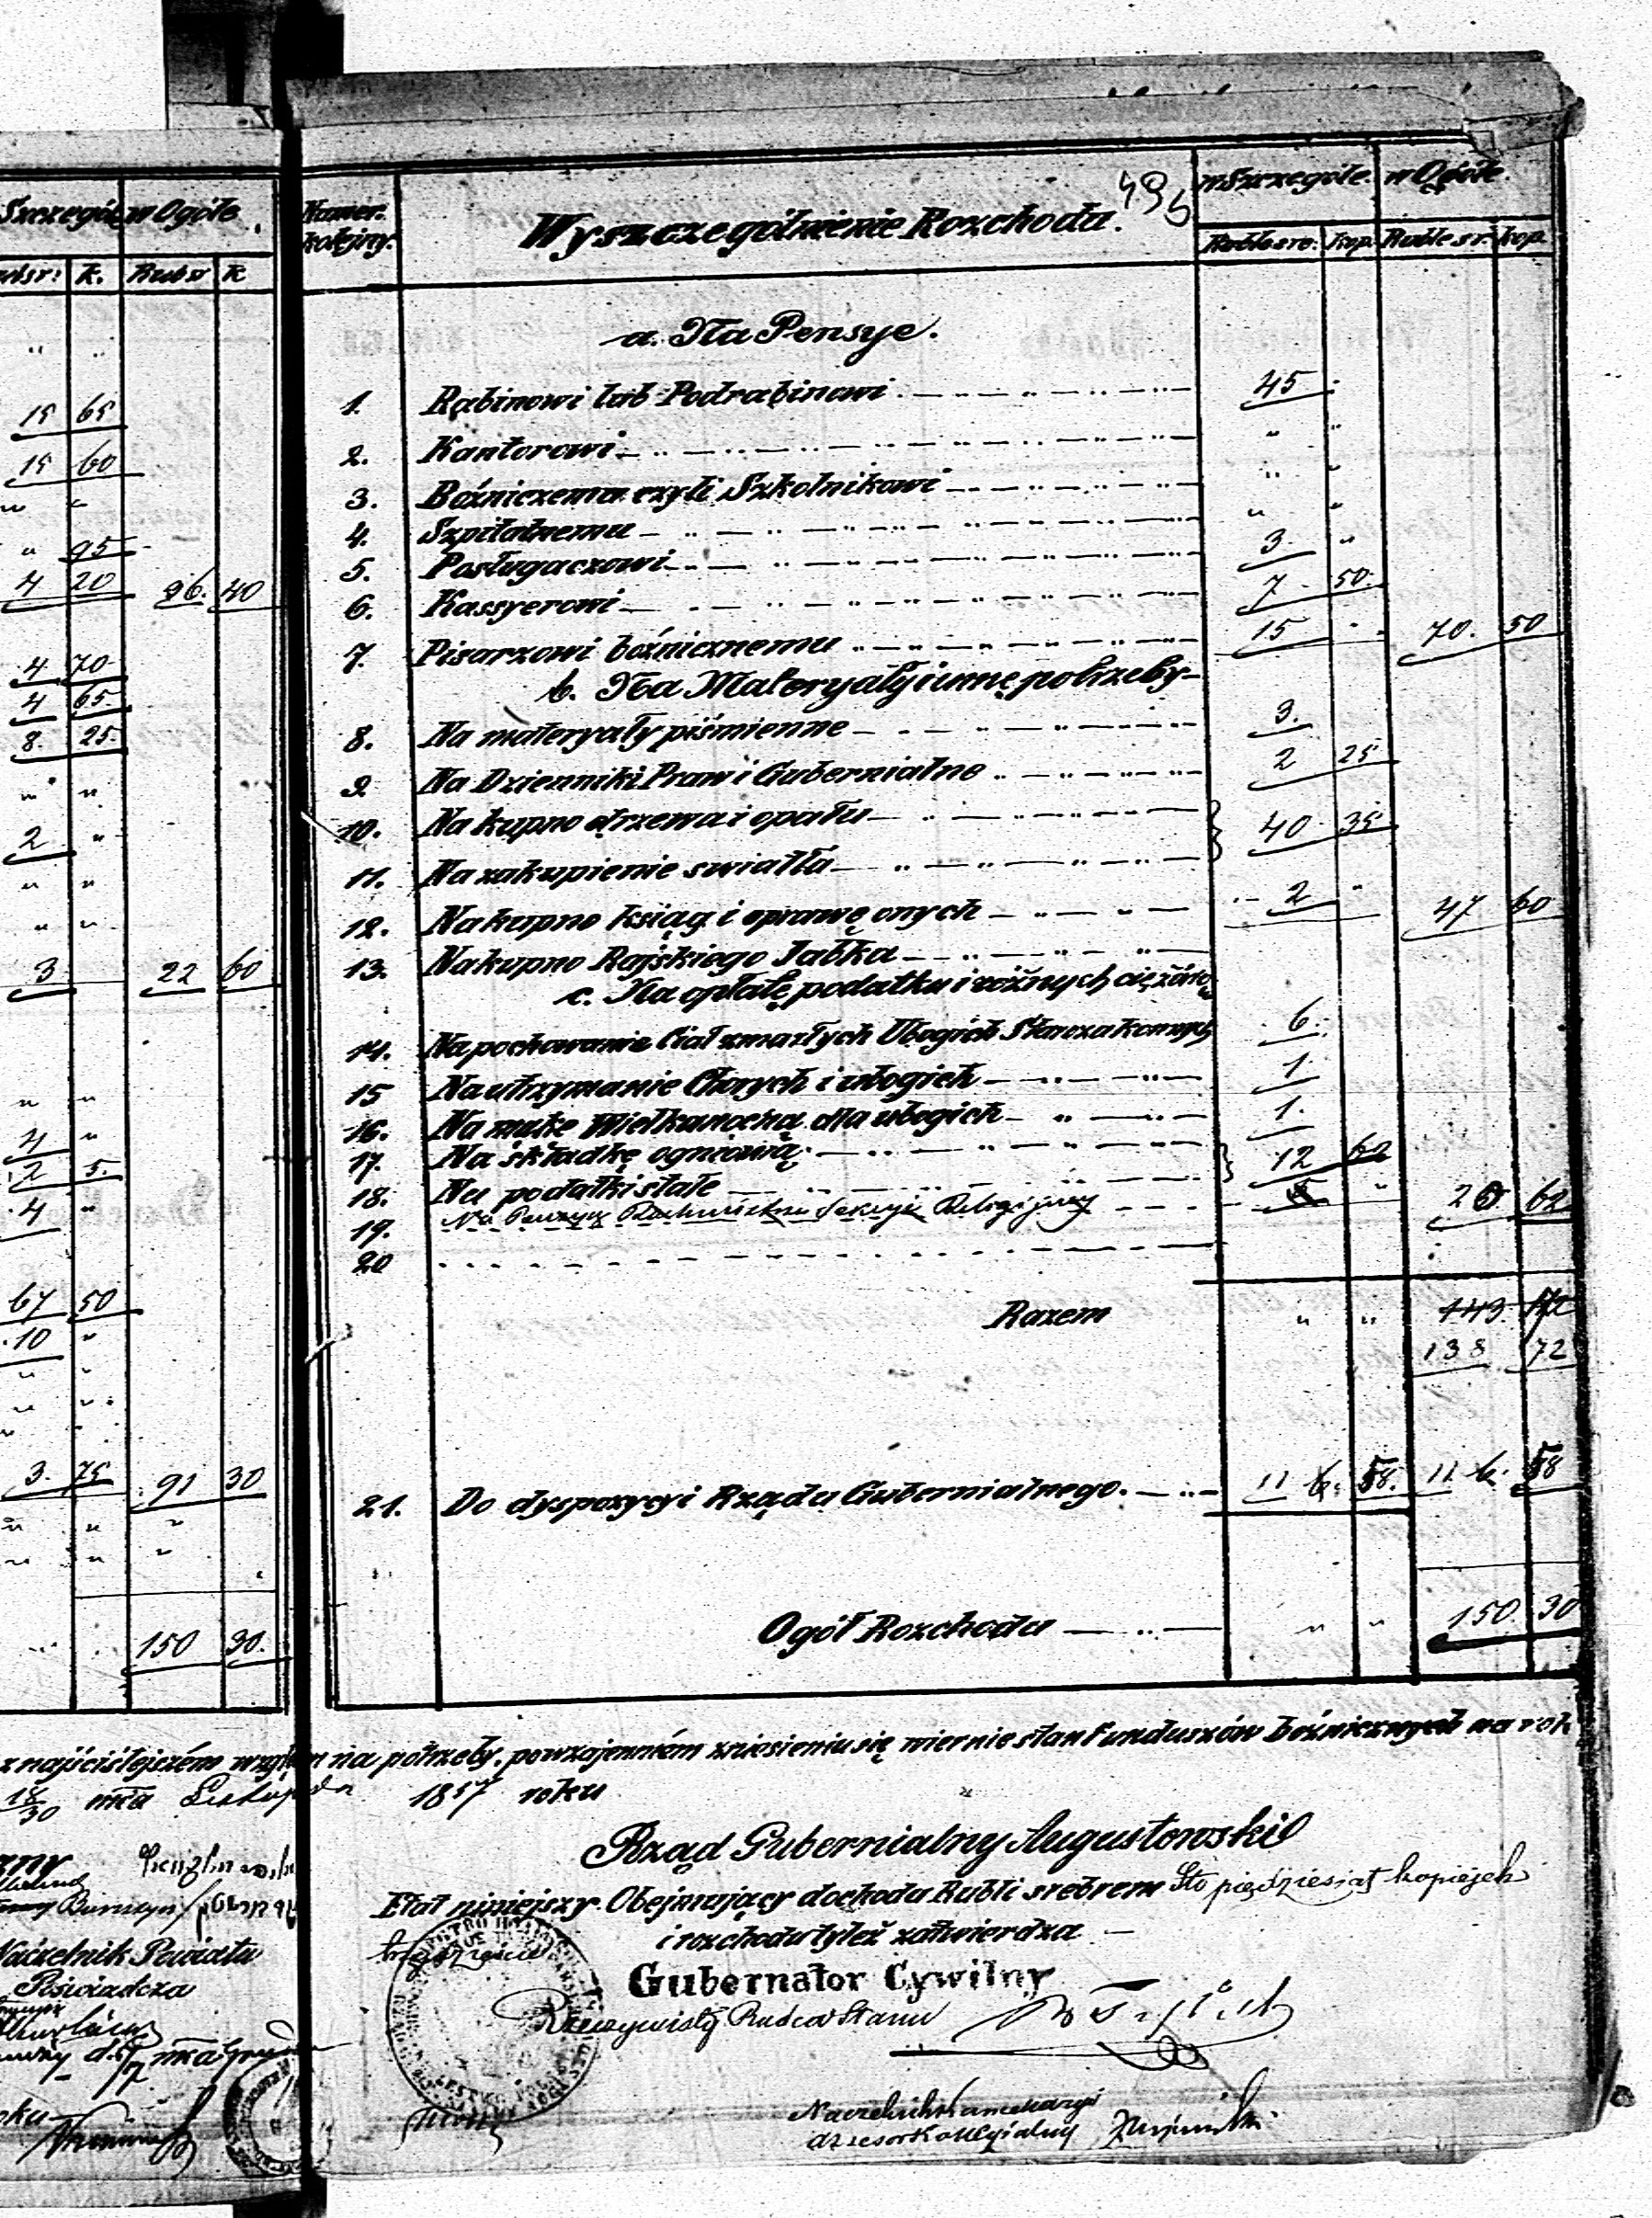 Szczególe w Ogóle
k. Rub sr k
15 65
15 60
" 95
4 20 96. 40
4 70
4 65.
8. 25.
2 "
3 22 60
4 "
2 5.
4 "
67 50
10 "
3. 75 91 30
150 30.
Numer kolejny. Wyszczególnienie Rozchodu. w Szczególe. w Ogóle.
Ruble sre: Kop. Ruble sr: kop
a. Na Pensye.
1. Rabinowi lub Podrabinowi 45
2. Kantorowi " "
3. Bóżniczemu czyli Szkolnikowi " "
4. Szpitalnemu " "
5. Posługaczowi 3 "
6. Kassyerowi 7 50
7. Pisarzowi bóżnicznemu 15 70. 50
b. Na Materyały i inne potrzeby
8. Na materyały piśmienne 3.
9. Na Dzienniki Praw i Gubernialne 2 25
10. Na kupno drzewa i opału 40 35
11. Na zakupienie swiatła
12. Na kupno ksiąg i oprawę onych 2 " 47 60
13. Na kupno Rajskiego Jabłka
c. Na opłatę podatku i różnych ciężarów
14. Na pochowanie Ciał zmarłych Ubogich Starozakonnych 6.
15 Na utrzymanie Chorych i ubogich 1.
16. Na mąkę Wielkanocną dla ubogich 1.
17. Na składkę ogniową 12 62
18. Na podatki stałe
19. Na Pensyą Rachmistrza Sekcyi Religijnej 5 " 20 62
20
Razem " " 143. 72
138 72
21. Do dyspozycyi Rządu Gubernialnego. 11 6. 58. 11 6. 58
Ogół Rozchodu " " 150. 30
z najściślejszém względem na potrzeby, po wzajemném zniesieniu się wiernie stan Funduszów bóżnicznych na rok
18/30 mca Listopada 1857 roku
Rząd Gubernialny Augustowski
Etat niniejszy Obejmujący dochodu Rubli srebrem Sto pięćdziesiąt kopiejek
trzydzieści i rozchodu tyleż zatwierdza
Gubernator Cywilny
Rzeczywisty Radca Stanu
Naczelnik Powiatu
Poświadcza
Naczelnik Kancelaryi
Assesor Kollegialny